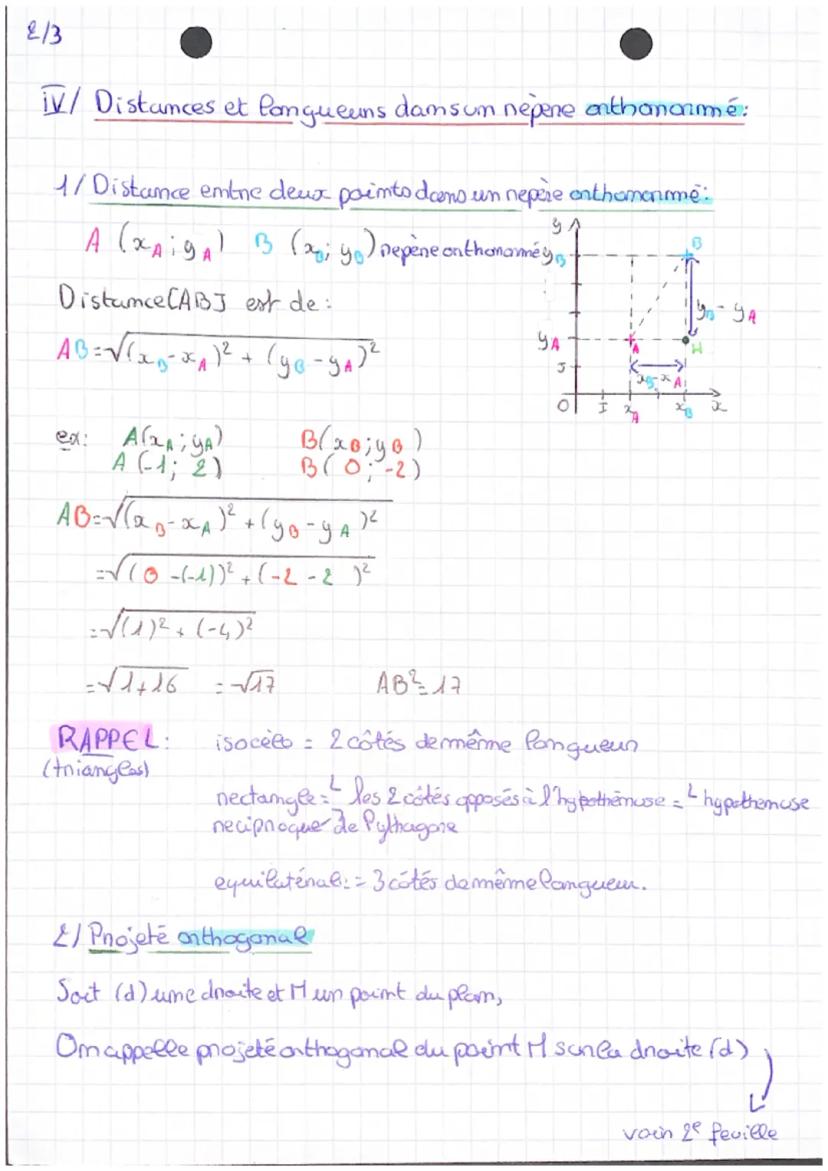 2/3
IV/ Distances et longueurs dans un repère orthonormé:
1/ Distance entre deux points dans un repère orthonormé:
A (xA ; yA) B (xB ; yB) repère orthonormé
Distance [AB] est de :
AB = √(xB - xA)² + (yB - yA)²
y
yB
B
yB - yA
yA
A
H
J
xB - xA
O I xA xB x
ex: A(xA ; yA) B(xB ; yB)
A (-1; 2) B( 0 ; -2)
AB = √(xB - xA)² + (yB - yA)²
= √(0 -(-1))² + (-2 - 2 )²
= √(1)² + (-4)²
= √1+16 = √17 AB² = 17
RAPPEL : isocèle = 2 côtés de même longueur
(triangles)
rectangle = ∟ les 2 côtés opposés à l'hypothénuse = ∟ hypothenuse
réciproque de Pythagore
équilatéral: = 3 côtés de même longueur.
2/ Projeté orthogonal
Soit (d) une droite et M un point du plan,
On appelle projeté orthogonal du point M sur la droite (d)
voir 2e feuille